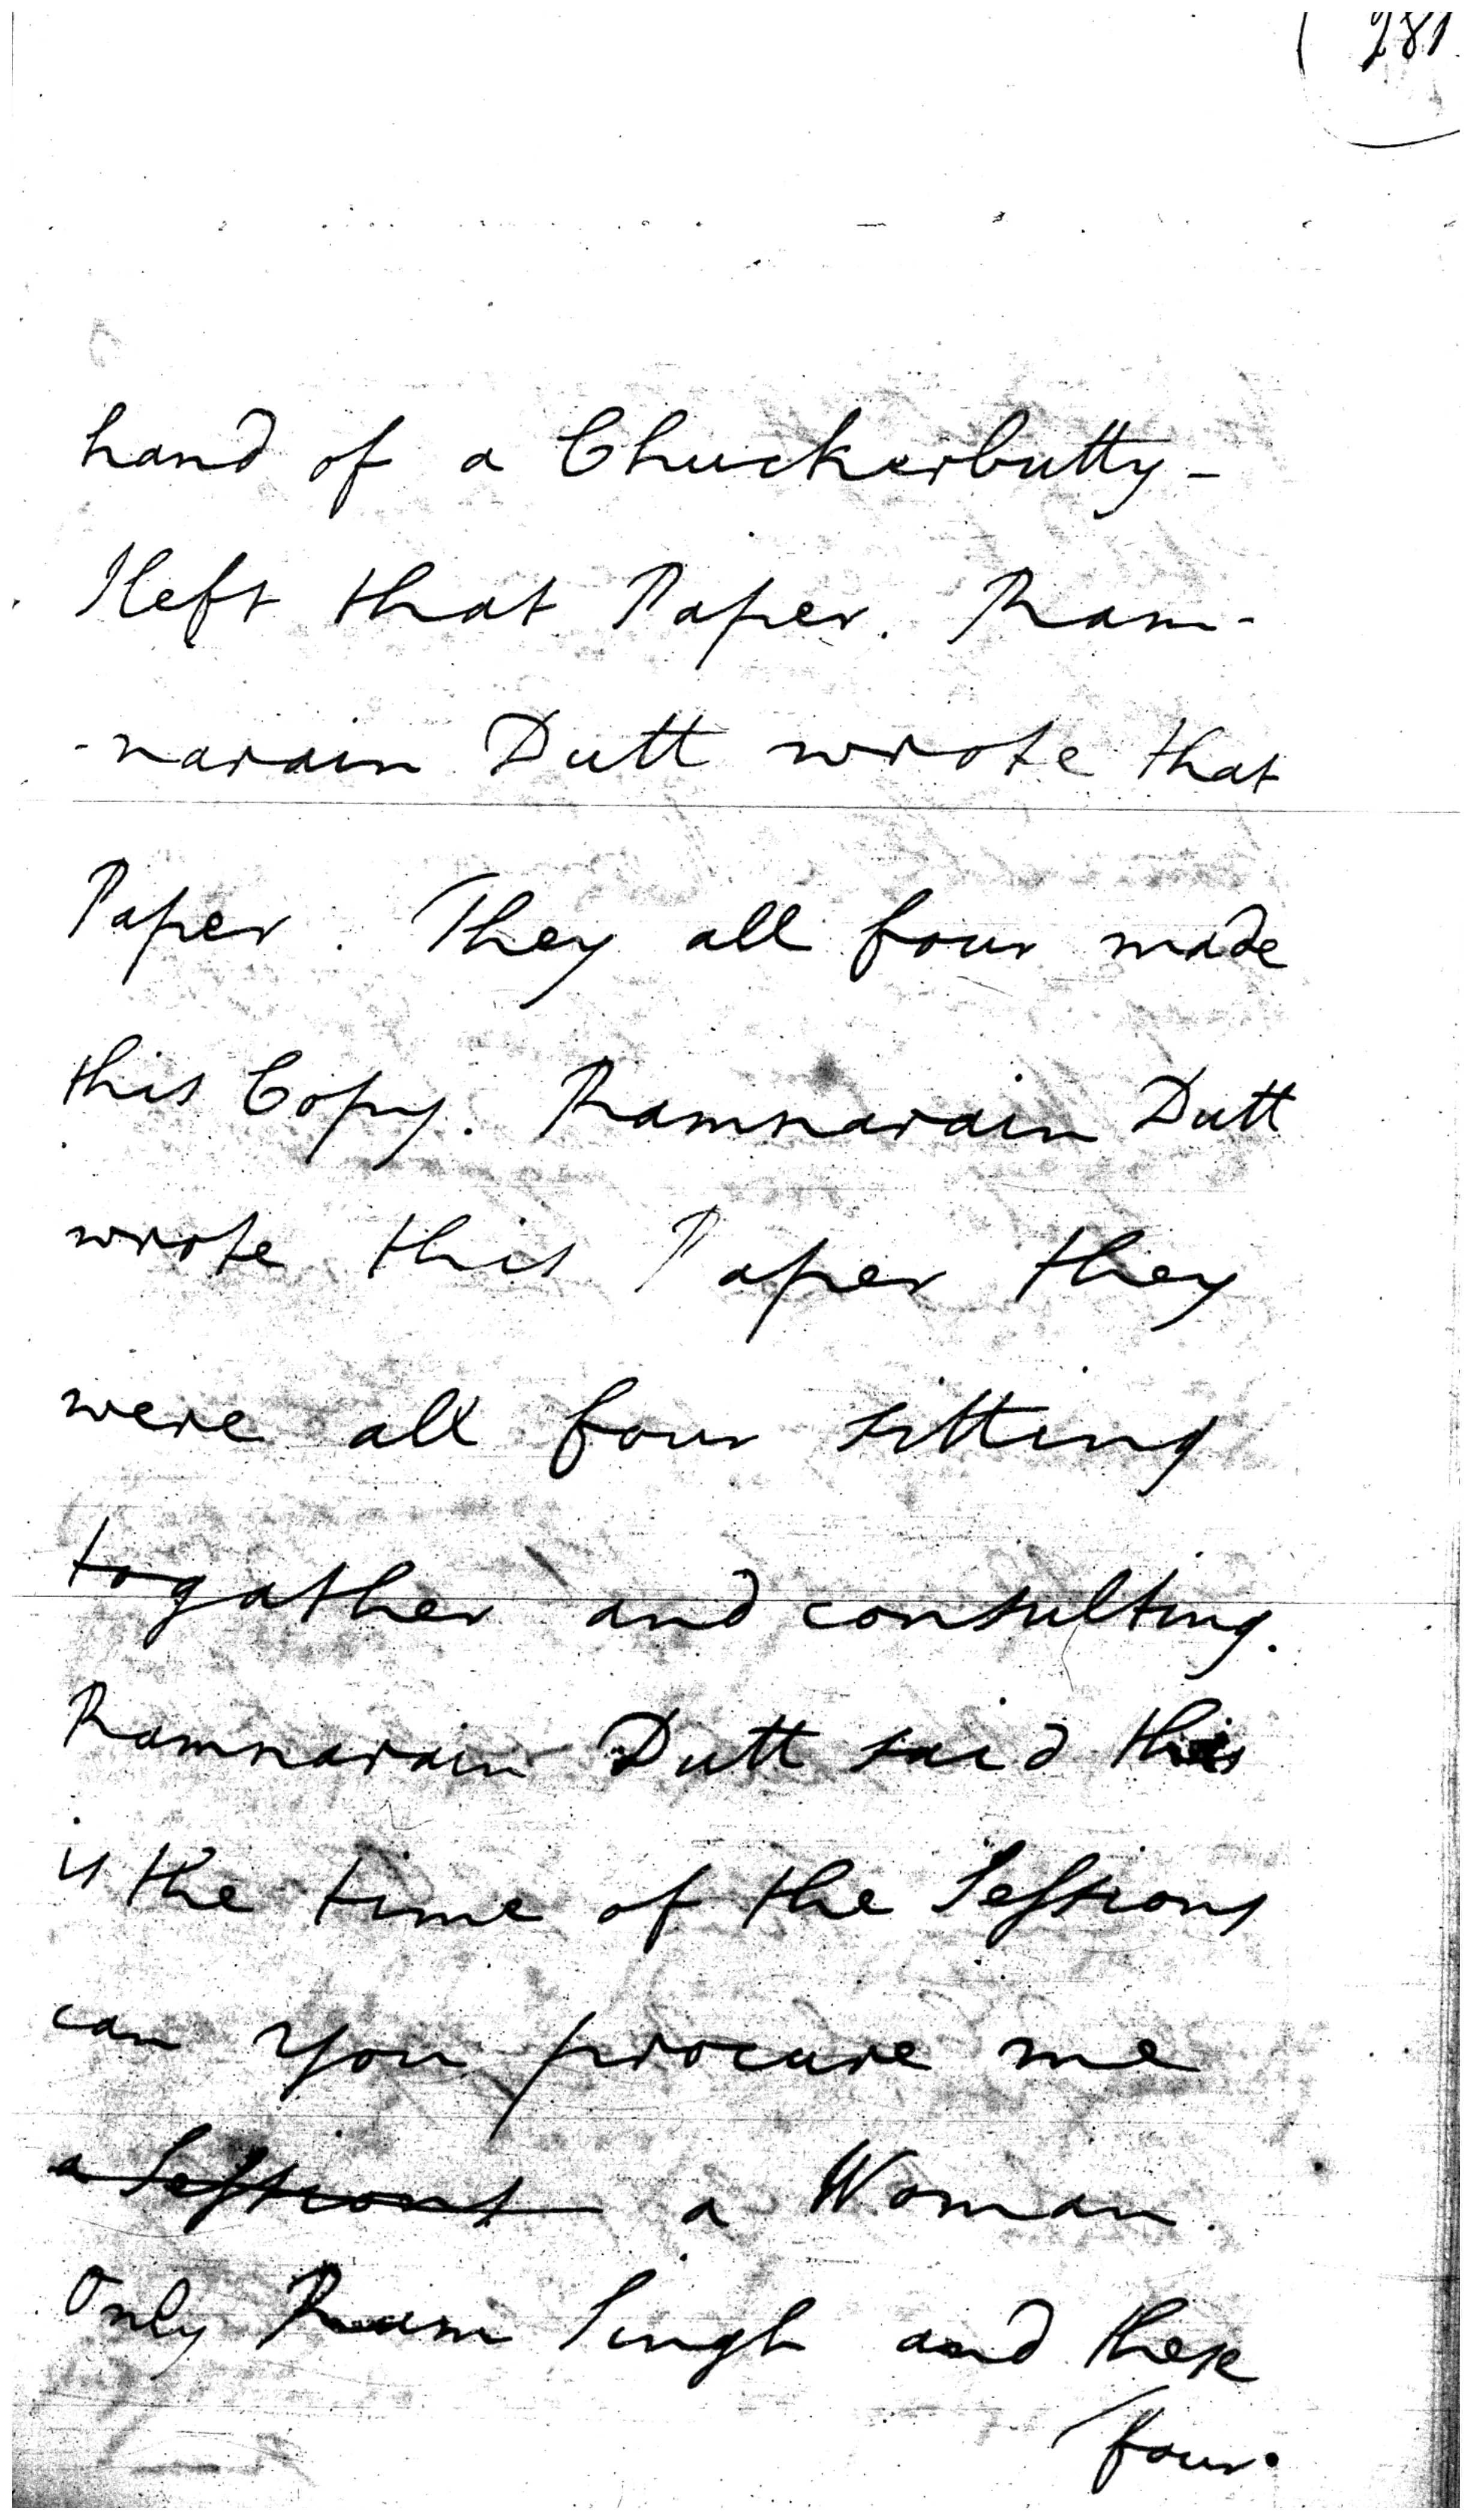 281
hand of a Chuckerbutty -
I left that Paper. Ram-
-narain Dutt wrote that
Paper. They all four made
this Copy. Ramnarain Dutt
wrote this Paper they
were all four sitting
togather and consulting.
Ramnarain Dutt said this
is the time of the Sessions
can you procure me
a Sessions a Woman.
Only Ram Singh and these
four.